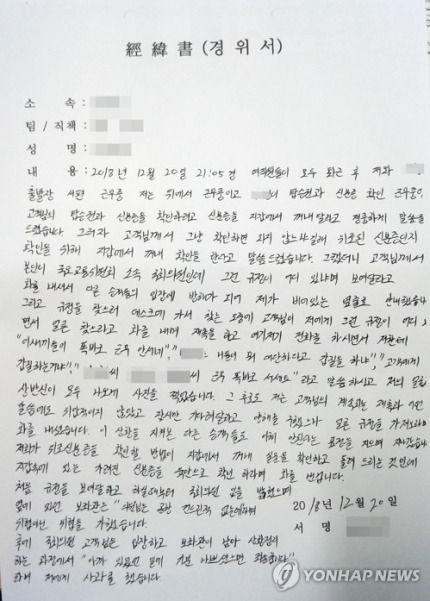 經緯書(경위서)
소 속 :
팀 / 직책 :
성 명 :
내 용 : 2018년 12월 20일 21:05경 여객들이 모두 퇴근 후 저와
출발장 서편 근무중 저는 뒤에서 근무중이고 탑승권과 신분증 확인 근무중에
고객님의 탑승권과 신분증을 확인하려고 신분증을 지갑에서 꺼내달라고 정중하게 말씀을
드렸습니다. 그러자 고객님께서 그냥 확인하면 되지 않느냐길래 위조된 신분증인지
확인을 위해 지갑에서 꺼내 확인을 한다고 말씀드렸습니다. 그랬더니 고객님께서
본인이 국토교통위원회 소속 국회의원인데 그런 규정이 어디 있냐며 보여달라고
화를 내셔서 다른 승객들의 입장에 방해가 되어 제가 비어있는 옆쪽으로 안내했습니다
그리고 규정을 찾으러 데스크에 가서 찾는 도중에 고객님이 저에게 그런 규정이 어디
면서 빨리 찾으라고 화를 내며 재촉을 하고 여기저기 전화를 하시면서
"이새끼들이 똑바로 근무 안서네", " 네들이 뭐 대단하다고 갑질을 하냐", "고객에게
갑질하는거냐" 씨 씨 근무 똑바로 서세요" 라고 말씀하시고 저의 얼굴
상반신이 모두 나오게 사진을 찍었습니다. 그 후로도 저는 고객님의 계속되는 재촉과
말씀에도 위압적이지 않았고 잠시만 기다려달라고 양해를 구했으나 빨리 규정을 가져오라
화를 내셨습니다. 이 상황을 지켜본 다른 승객들도
제가 위조신분증을 확인할 방법이 지갑에서 꺼내 확인하고 돌려 드리는 것인데
지갑속에 있는 가려진 신분증을 육안으로 확인 하라며 화를 냈습니다.
처음 규정을 보여달라고 국회의원 밝혔으며
옆에 있던 보좌관은 "의원님은 공항 건드린적 없는데
위협아닌 위협을 가했습니다. 2018년 12월 20일
후에 국회의원 고객님은 입장하고 보좌관이 남아 서 명
하는 과정에서 "아까 기분 나빴으면 죄송합니다"
하며 저에게 사과를 했습니다.
YONHAP NEWS